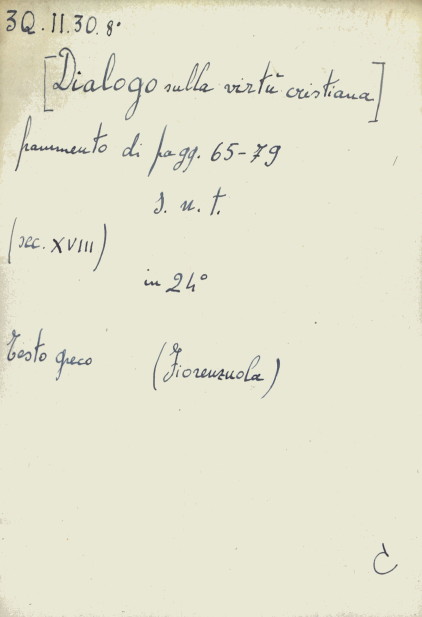 3Q.II.30.8°
[Dialogo sulla virtù cristiana]
frammento di pagg. 65-79
s. n. t.
(sec. XVIII)
in 24°
Testo greco (Fiorenzuola)
C